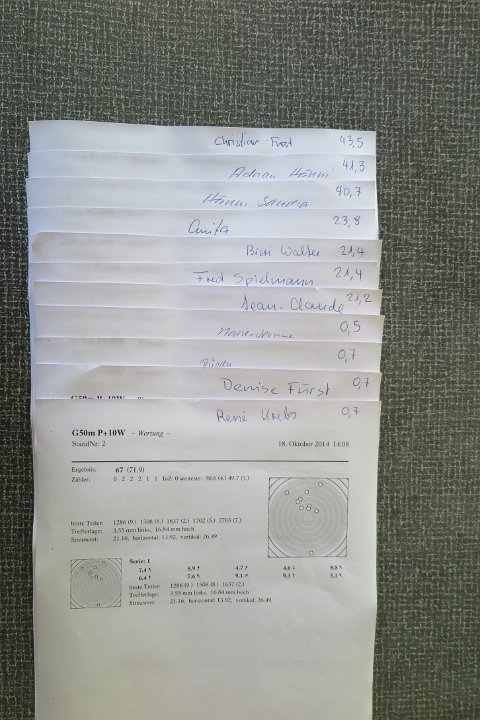 Christian Fürst 43,5
Adrian Hänni 41,3
Hänni Sandra 40,7
Anita 23,8
Bieri Walter 21,4
Fred Spielmann 21,4
Jean-Claude 21,2
Marie-Jeanne 0,5
0,7
Denise Fürst 0,7
René Krebs 0,7
G50m P+10W - Wertung -
StandNr. 2 18. Oktober 2014 14:08
Ergebnis: 67 (71.9)
Zähler: 0 2 2 2 1 1 InZ: 0 weiteste: 50.6 (4.) 49.7 (3.)
beste Teiler: 1286 (9.) 1508 (8.) 1637 (2.) 1702 (5.) 2703 (7.)
Trefferlage: 3.55 mm links, 16.84 mm hoch
Streuwert: 21.16, horizontal: 13.92, vertikal: 26.49
Serie: 1
7.4 8.9 4.7 4.6 8.8
6.4 7.6 9.1 9.3 5.1
beste Teiler: 1286 (9.) 1508 (8.) 1637 (2.)
Trefferlage: 3.55 mm links, 16.84 mm hoch
Streuwert: 21.16, horizontal: 13.92, vertikal: 26.49